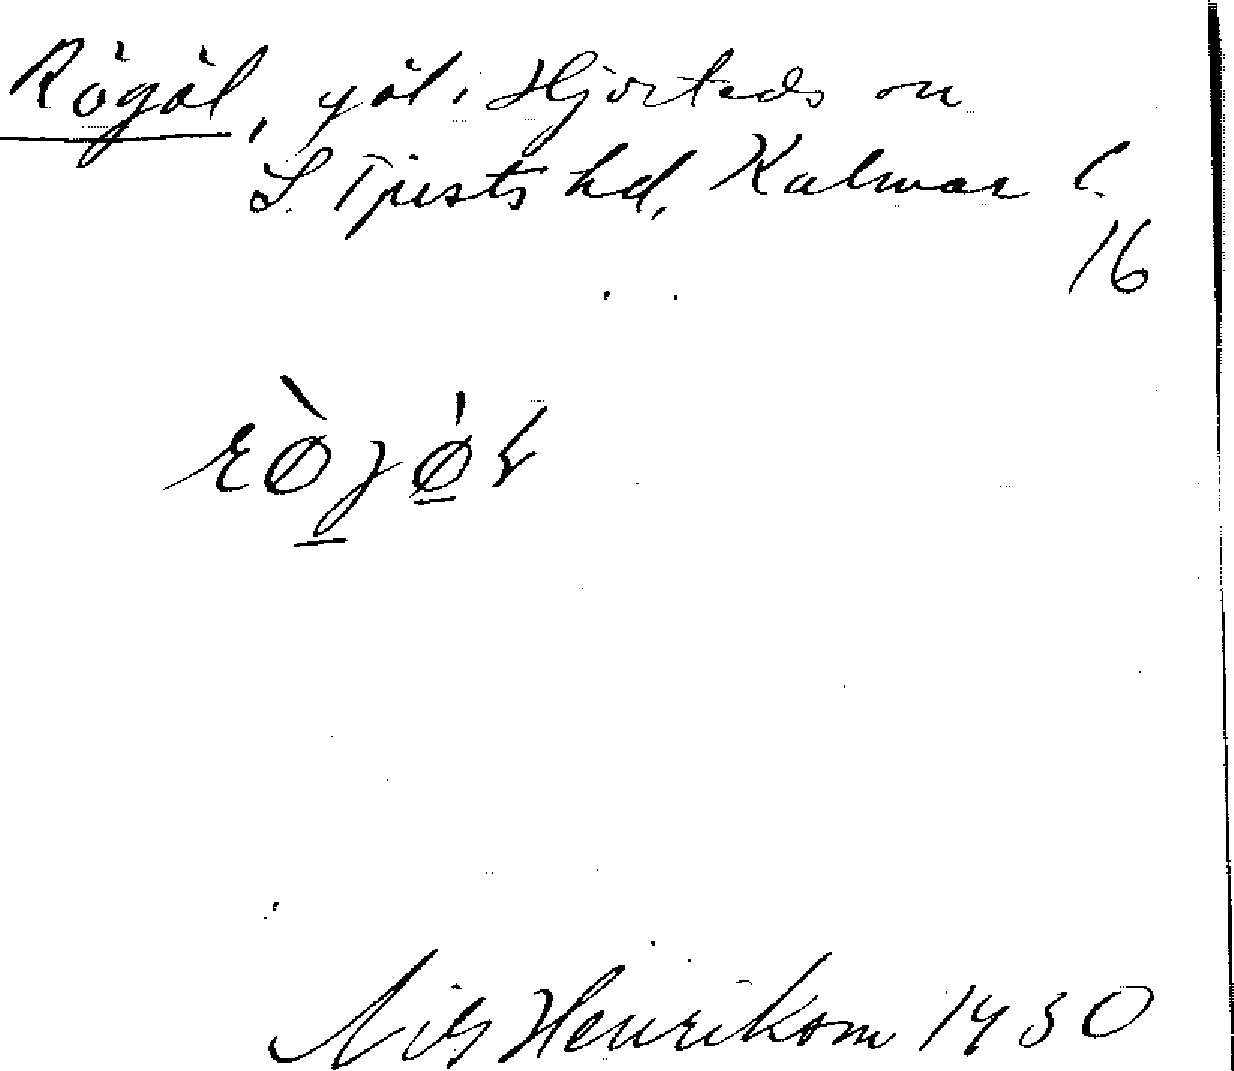 Rögöl, göl i Hjorteds sn
S. Tjusts hd, Kalmar l.
16
rø̀jø̀ḷ
Nils Henrikson 1930